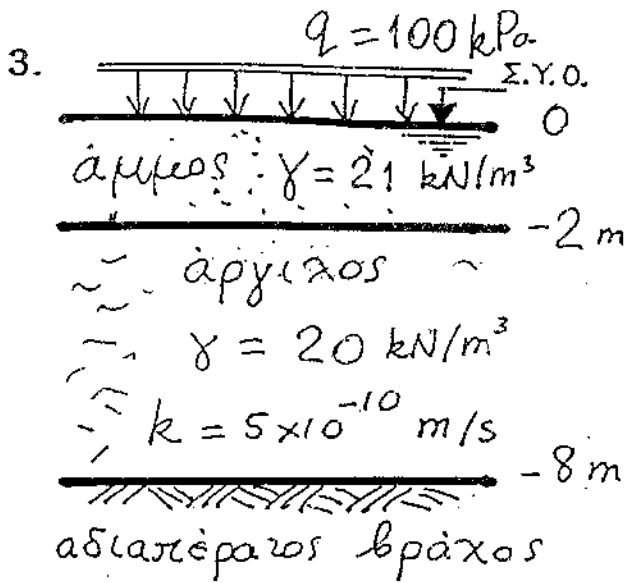 3.
q = 100 kPa
Σ.Υ.Ο.
0
άμμος γ = 21 kN/m³
-2 m
άργιλος
γ = 20 kN/m³
k = 5×10⁻¹⁰ m/s
-8 m
αδιαπέρατος βράχος